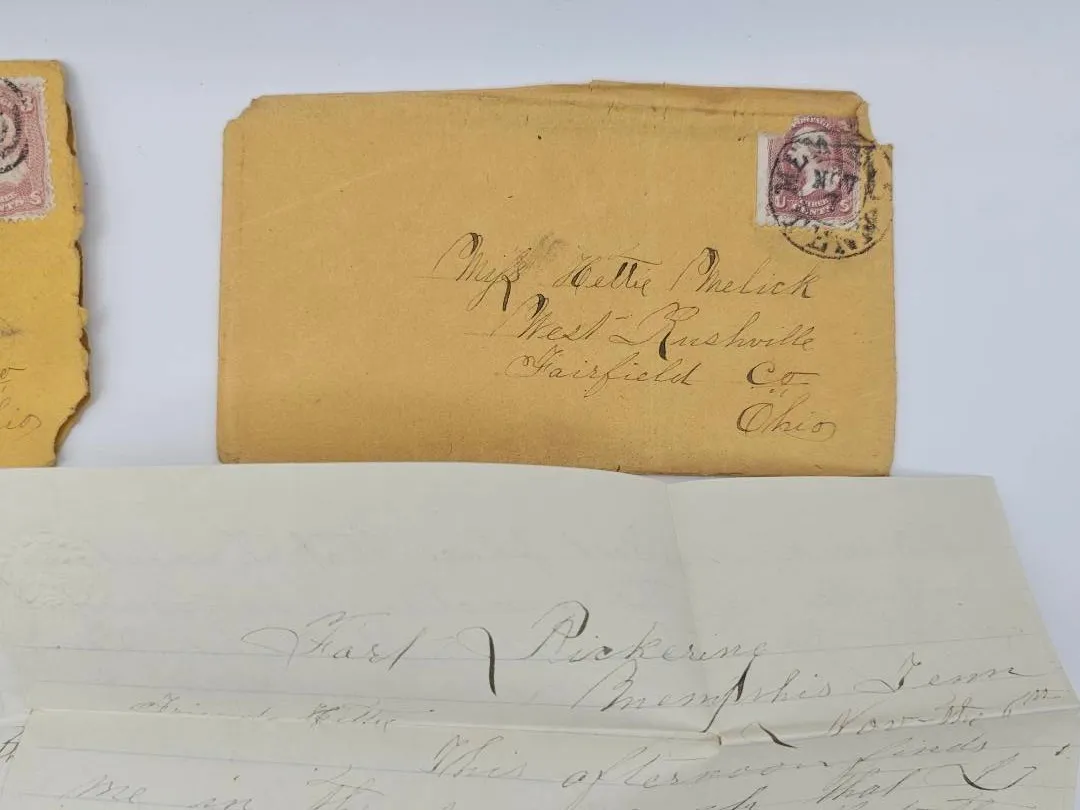 S
io
MEM
NOV
7
TENN
U CENTS S
Miss Hettie Melick
West Rushville
Fairfield Co
Ohio
Fort Pickering
Memphis Tenn
Nov the 6th
Friend Hettie
This afternoon finds
me in the
that